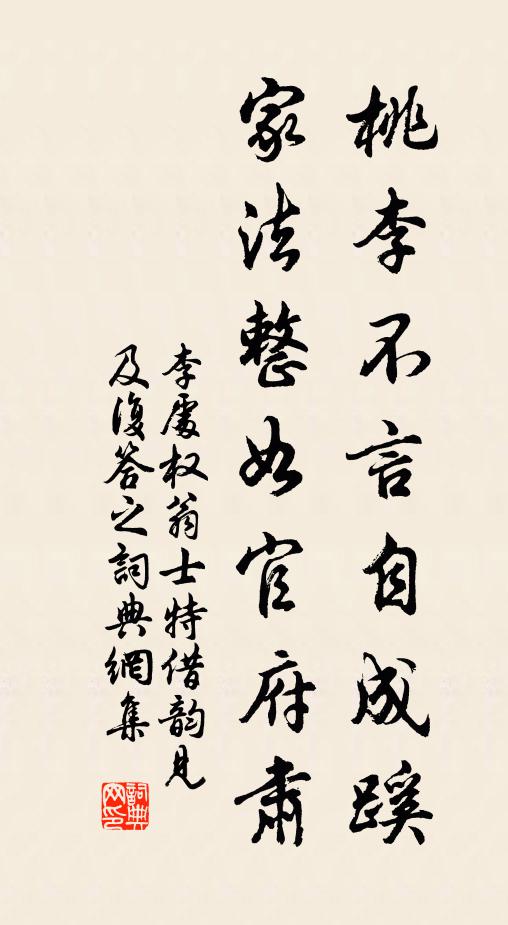 桃李不言自成蹊
家法整如官府肅
李處权翁士特借韵見
及復答之詞典網集
詞典网印